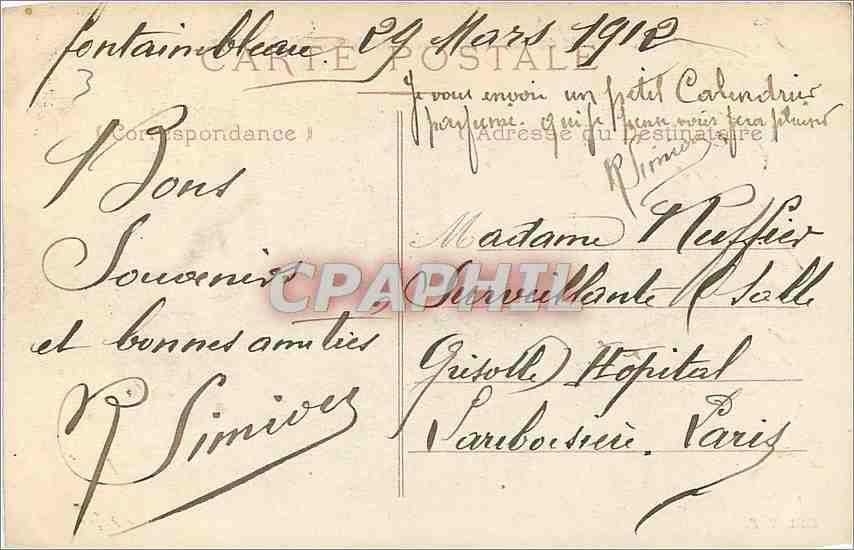 Fontainebleau. 29 Mars 1912
CARTE POSTALE
Je vous envoie un petit Calendrier
parfumé. qui je pense vous fera plaisir
(Correspondance)
Adresse du Destinataire
Bons
Souvenirs
et bonnes amitiés
R Simivez
R Simivez
Madame Ruffier
Surveillante Salle
Grisolle Hopital
Lariboisière. Paris
CPAPHIL